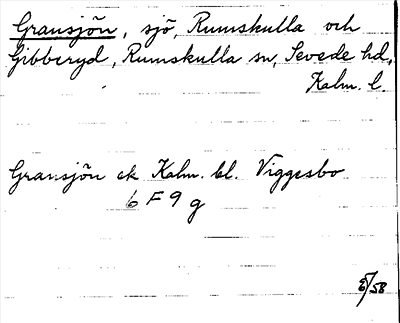 Gransjön, sjö, Rumskulla och
Gibberyd, Rumskulla sn, Sevede hd,
Kalm. l.
Gransjön ek Kalm. bl. Viggesbo
6 F 9 g
/58